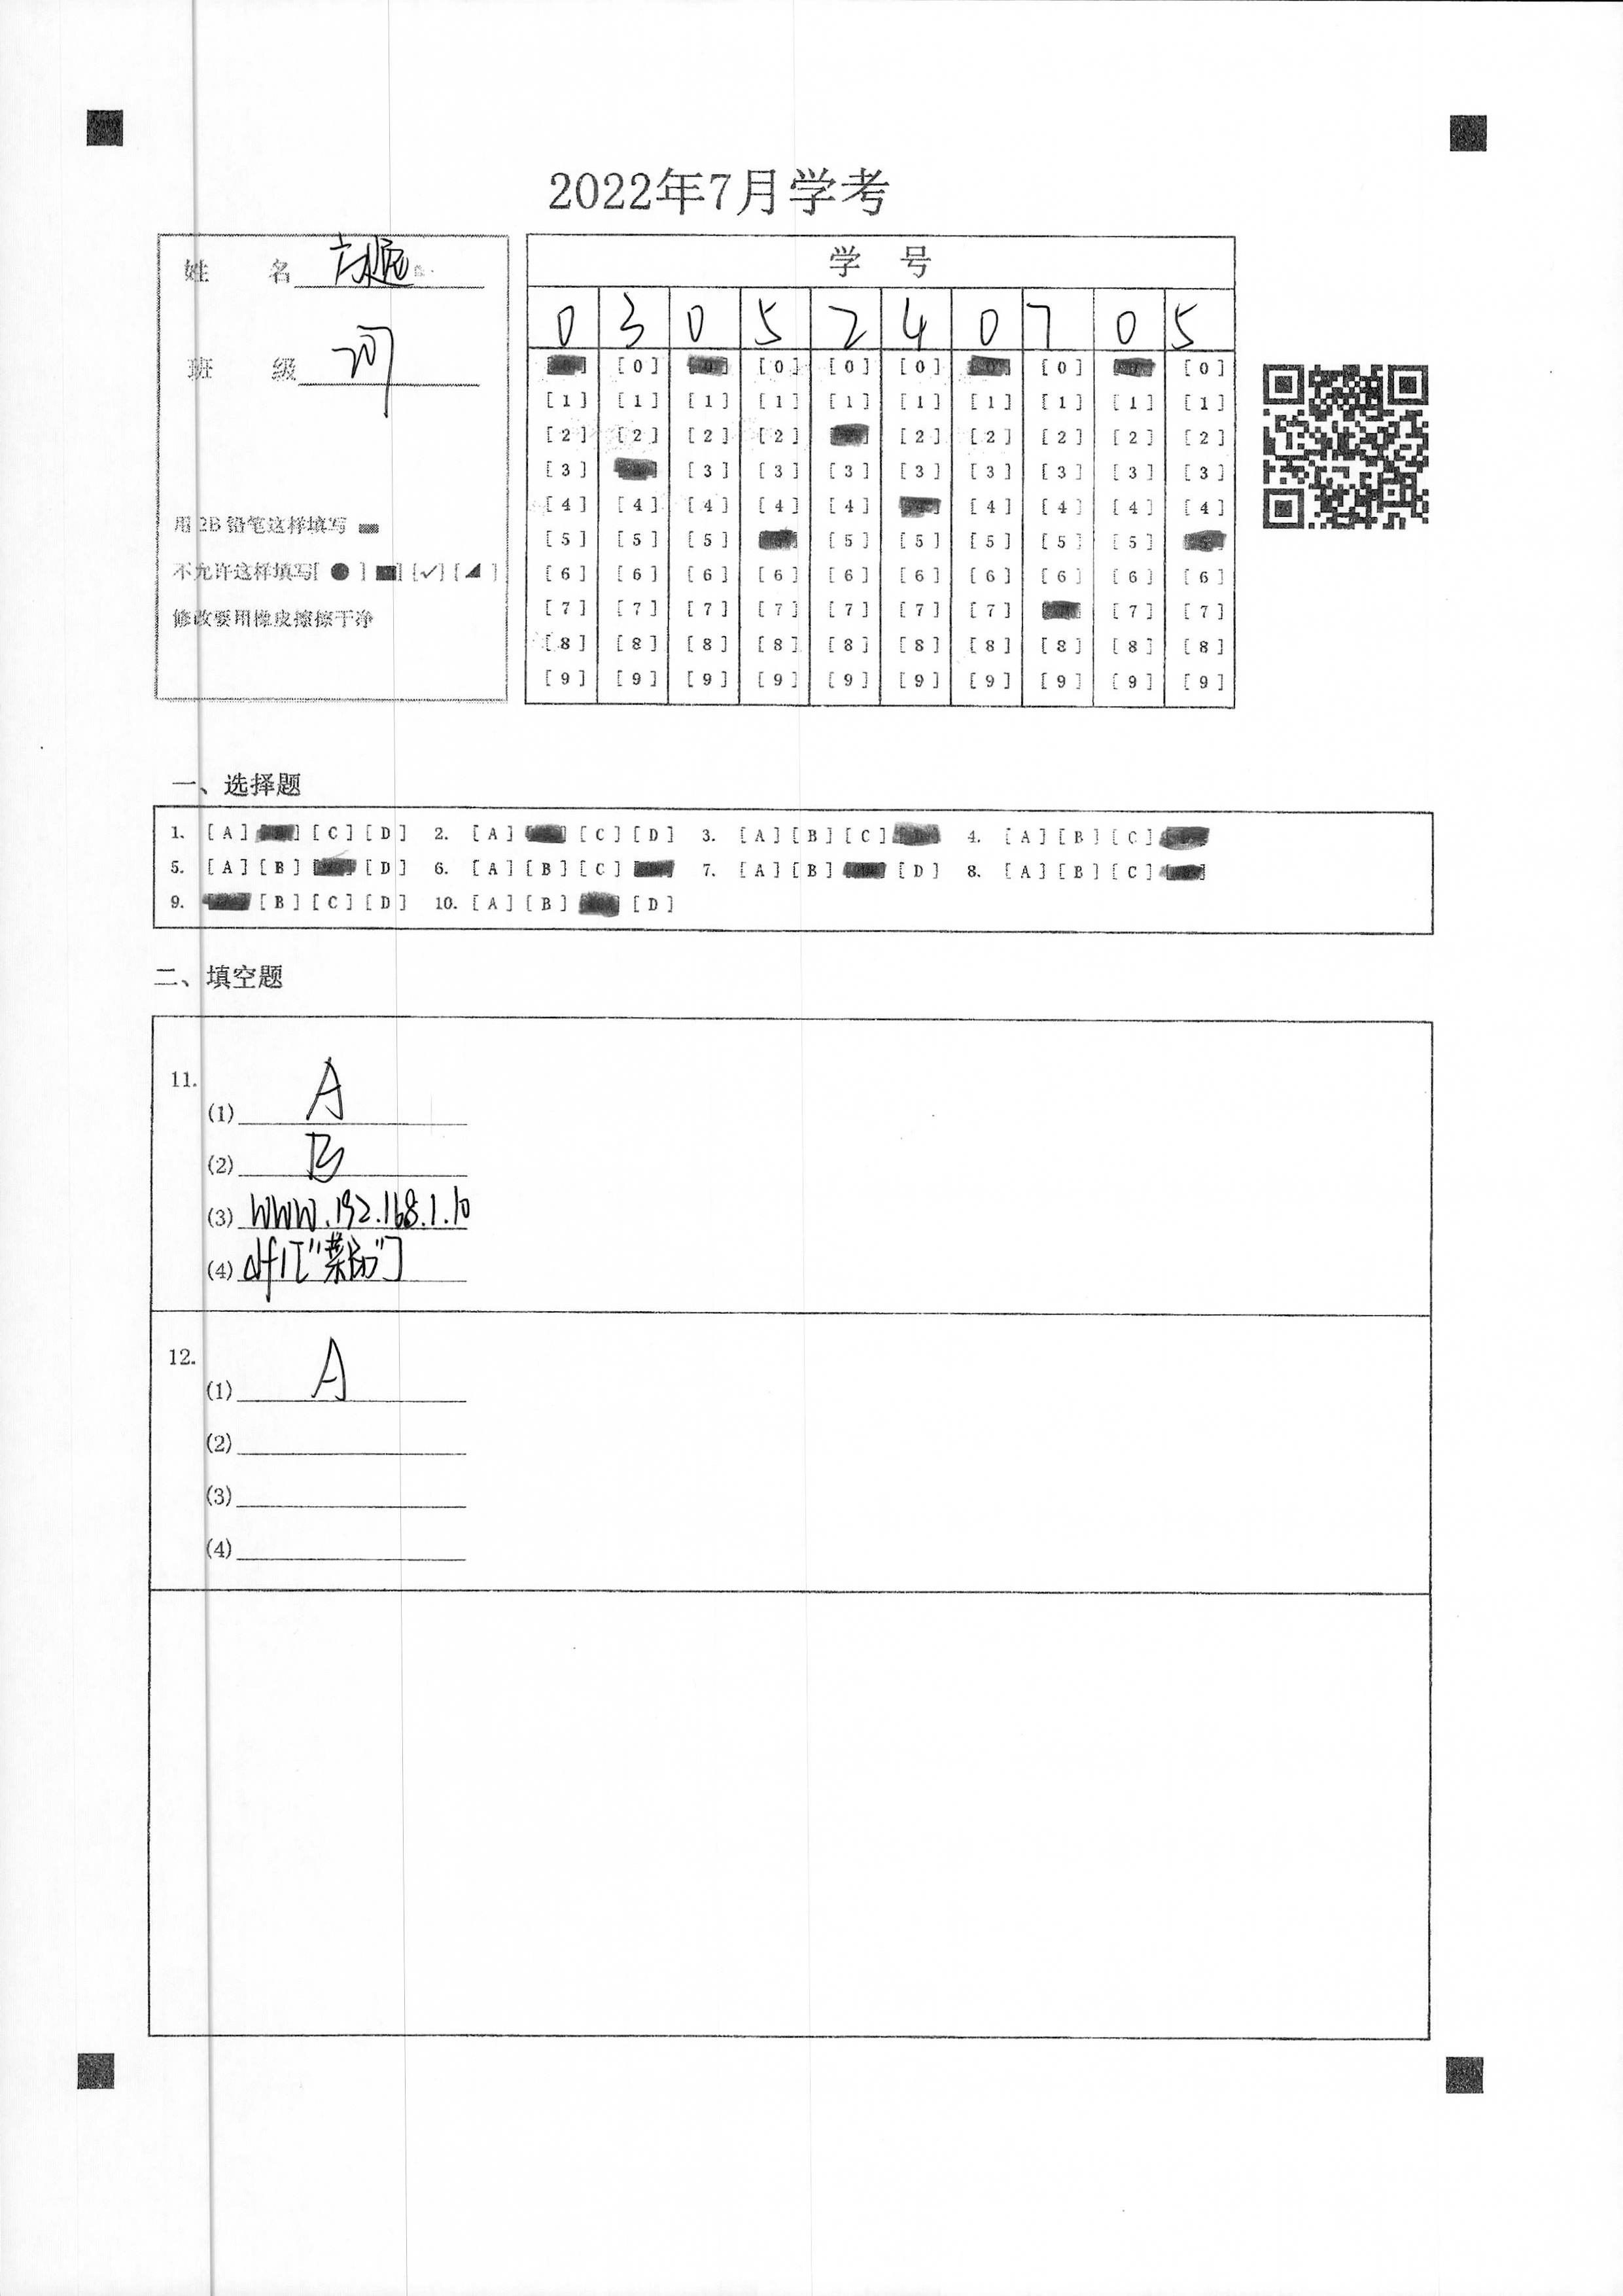 2022年7月学考
姓 名
班 级
用2B铅笔这样填写
不允许这样填写[ ● ] [■] [✓] [◢ ]
修改要用橡皮擦擦干净
学 号
0 3 0 5 2 4 0 7 0 5
[0] [0] [0] [0] [0] [0]
[1] [1] [1] [1] [1] [1] [1] [1] [1] [1]
[2] [2] [2] [2] [2] [2] [2] [2] [2]
[3] [3] [3] [3] [3] [3] [3] [3] [3]
[4] [4] [4] [4] [4] [4] [4] [4] [4]
[5] [5] [5] [5] [5] [5] [5] [5]
[6] [6] [6] [6] [6] [6] [6] [6] [6] [6]
[7] [7] [7] [7] [7] [7] [7] [7] [7]
[8] [8] [8] [8] [8] [8] [8] [8] [8] [8]
[9] [9] [9] [9] [9] [9] [9] [9] [9] [9]
一、选择题
1. [A] [C] [D] 2. [A] [C] [D] 3. [A] [B] [C] 4. [A] [B] [C]
5. [A] [B] [D] 6. [A] [B] [C] 7. [A] [B] [D] 8. [A] [B] [C]
9. [B] [C] [D] 10. [A] [B] [D]
二、填空题
11.
(1) A
(2) B
(3) www.192.168.1.10
(4) df1["菜品"]
12.
(1) A
(2)
(3)
(4)